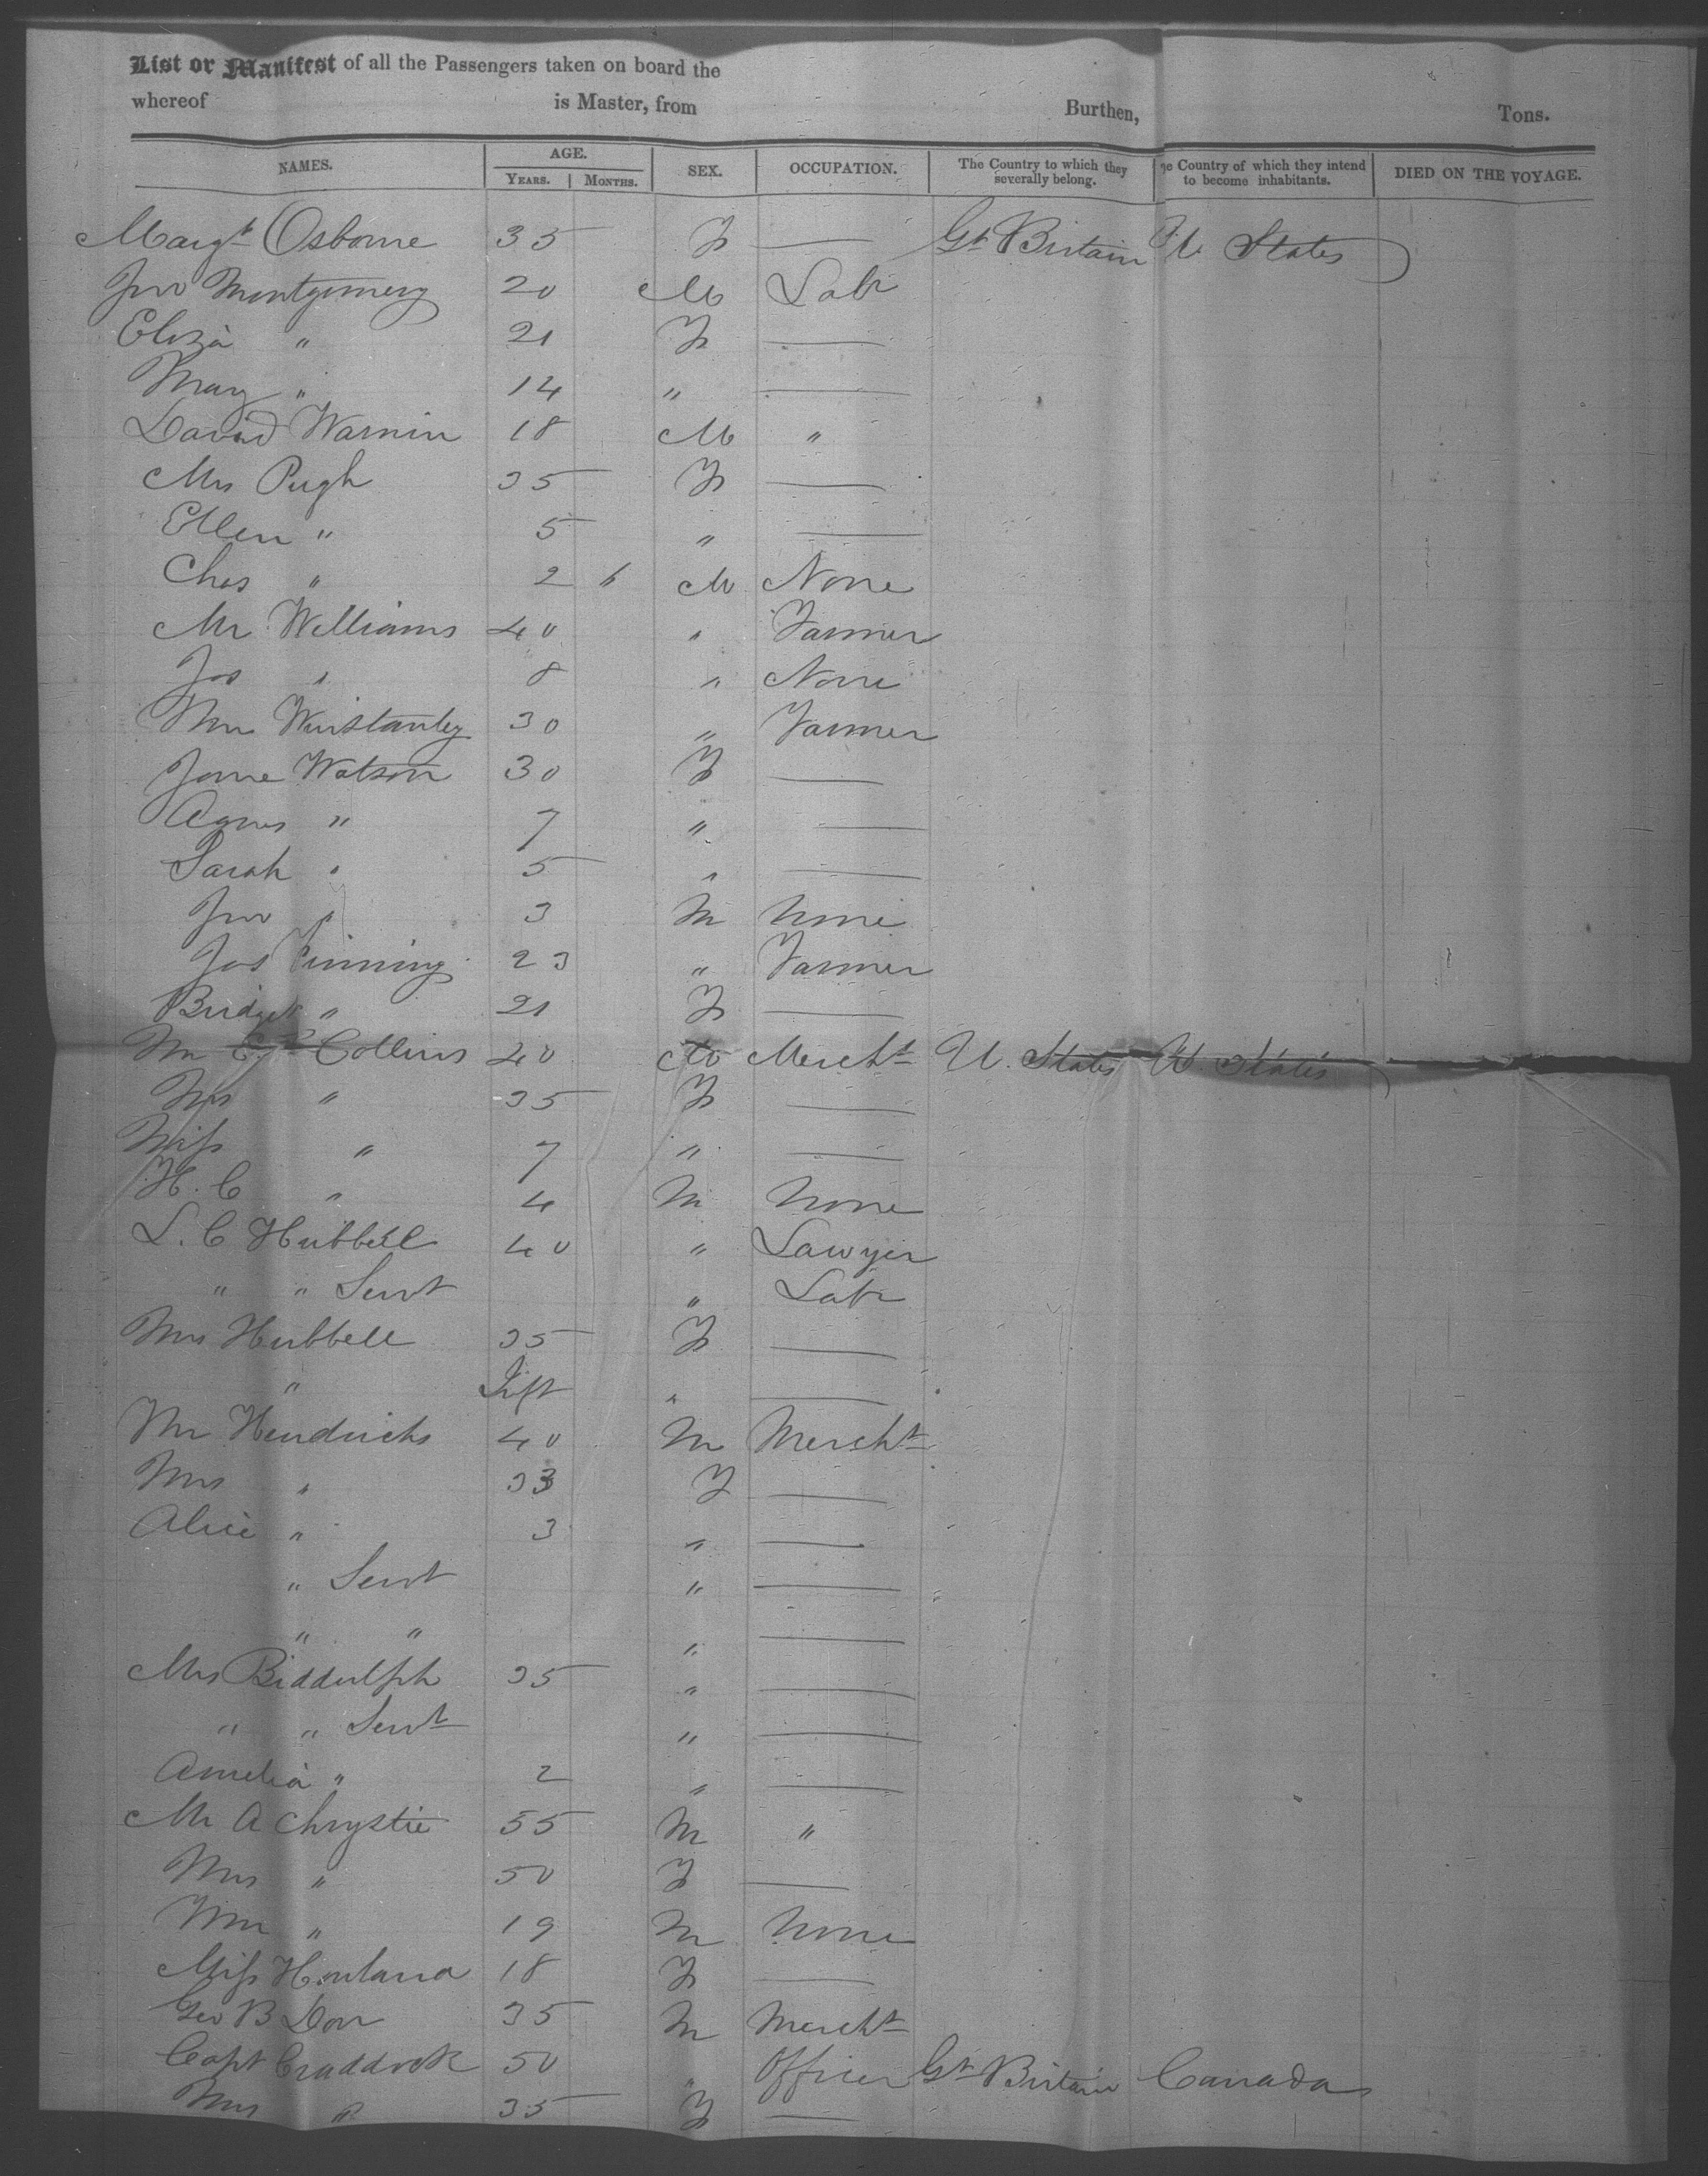 List or Manifest of all the Passengers taken on board the
whereof is Master, from Burthen, Tons.
NAMES. AGE. YEARS. MONTHS. SEX. OCCUPATION. The Country to which they severally belong. he Country of which they intend to become inhabitants. DIED ON THE VOYAGE.
Margt Osborne 35 F — Gt Britain U States
Jno Montgomery 20 M Labr
Eliza " 21 F —
Mary " 14 " —
David Warnin 18 M "
Mrs Pugh 35 F —
Ellen " 5 " —
Chas " 2 M None
Mr Williams 40 " Farmer
Jos " 8 " None
Wm Winstanley 30 " Farmer
Jane Watson 30 F —
Agnes " 7 " —
Sarah " 5 " —
Jno " 3 M None
Jas 23 " Farmer
Bridget " 21 F —
Mr Collins 40 M Mercht U. States U. States
Mrs " 35 F —
Miss " 7 " —
H. C " 4 M None
L. C Hubbell 40 " Lawyer
" " Servt " Labr
Mrs Hubbell 35 F —
" Inft " —
Mr Hendricks 40 M Mercht
Mrs " 33 F —
Alice " 3 " —
" Servt " —
" " " —
Mrs Biddulph 35 " —
" " Servt " —
Amelia " 2 " —
Mr A Chrystie 55 M "
Mrs " 50 F —
Wm " 19 M None
Miss 18 F —
Geo B Dorr 35 M Mercht
Capt Craddock 50 " Officer Gt Britain Canada
Mrs " 35 F —